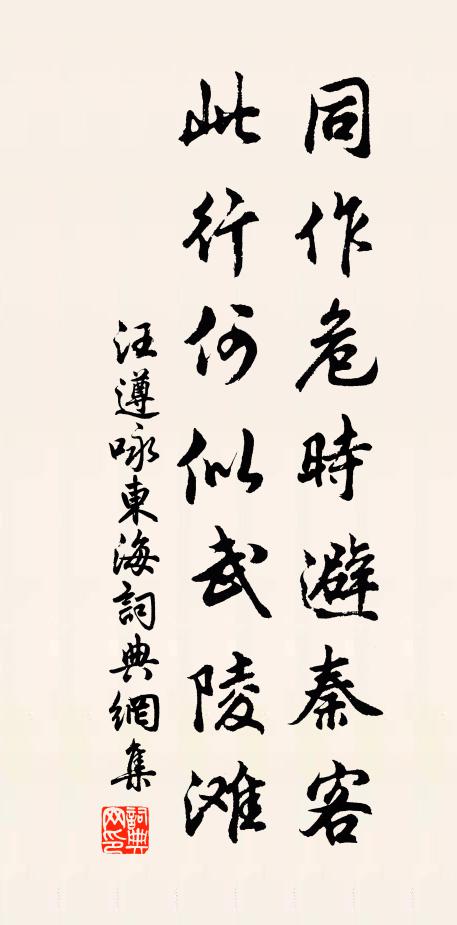 同作危時避秦客
此行何似武陵滩
汪遵咏東海詞典網集
詞典網印